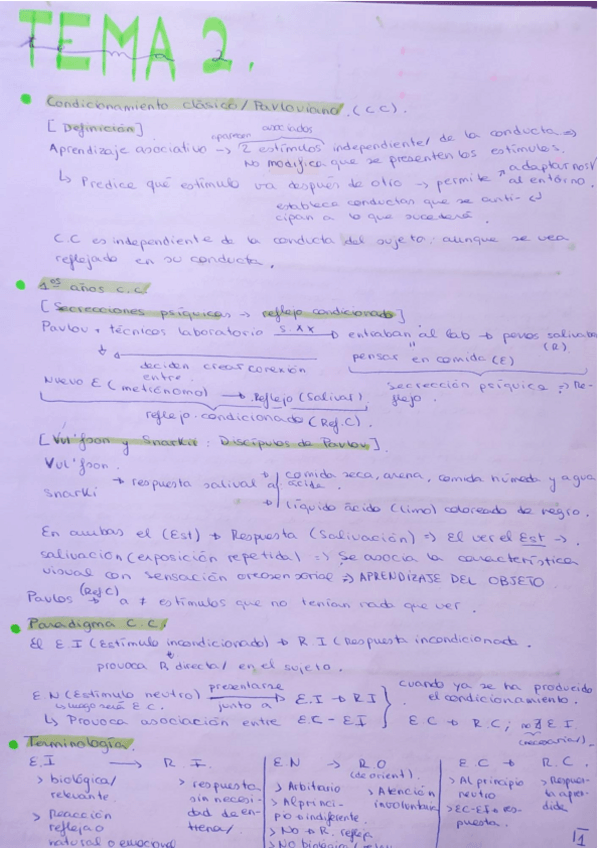 TEMA 2.
tema 2
Condicionamiento clásico/Pavloviano. (C.C).
[Definición]
aparecen asociados
Aprendizaje asociativo → 2 estímulos independiente/ de la conducta ⇒
No modifica que se presenten los estímulos.
↳ Predice qué estímulo va después de otro → permite adaptarnos/
al entorno.
establece conductas que se anti-
cipan a lo que sucederá.
C.C es independiente de la conducta del sujeto, aunque se vea
reflejado en su conducta.
1os años C.C.
[Secrecciones psíquicas → reflejo condicionado]
Pavlov + técnicos laboratorio → entraban al lab → perros salivaban
(R)
pensar en comida (E)
deciden crear conexión
entre
Nuevo E (metrónomo) → Reflejo (Salival)
secrección psíquica ⇒ Re-
flejo.
reflejo condicionado (Ref.C)
[Vul'fson y Snarkii: Discípulos de Pavlov].
Vul'fson
Snarki
→ respuesta salival a
comida seca, arena, comida húmeda y agua
ácida.
líquido ácido (limo) coloreado de negro.
En ambas el (Est) → Respuesta (Salivación) ⇒ El ver el Est →
salivación (exposición repetida) ⇒ Se asocia la característica
visual con sensación orosensorial ⇒ APRENDIZAJE DEL OBJETO
(Ref C)
Pavlov → a ≠ estímulos que no tenían nada que ver.
Paradigma C.C.
El E.I (Estímulo incondicionado) → R I (Respuesta incondicionada.
provoca R directa/ en el sujeto.
E.N (Estímulo neutro) presentarse junto a E.I → R I
luego será E.C.
cuando ya se ha producido
el condicionamiento.
↳ Provoca asociación entre EC - EI
E.C → R.C; no E I.
(necesaria/)
Terminología.
E.I → R.I.
> biológica/
relevante
> Reacción
refleja o
natural o emocional
> respuesta
sin necesi-
dad de en-
trena/
E N → R.O
(de orient)
> Arbitrario
> Al princi-
pio indiferente
> No → R. refleja
> No biológica/
> Atención
involuntaria
E.C → R.C.
> Al principio
neutro
> EC-EI → res-
puesta.
> Respues-
ta apren-
dida
1